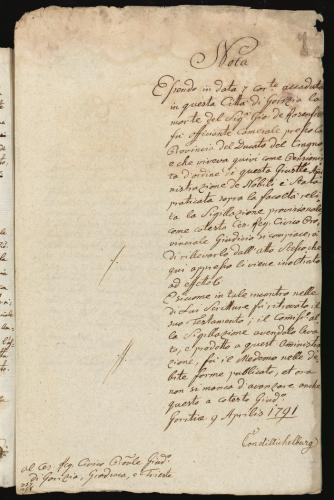 Nota
Essendo in data 7 corte accaduta
in questa Città di Gorizia la
morte del Sig. Gio. de
fù officiante Camerale presso la
Provincia del Ducato del
e che viveva quivi come Pensionis
ta d'ordine di questa Giustle Ami
nistrazione de Nobili è stata
praticata sopra la facoltà reli
ta la Sigillazione provisionale
come cotesto Ces. Reg. Civico Pro
vinciale Giudicio si compiacerà
di rilevarlo dall'atto stesso, che
qui appresso li viene inoltrato
ad effetto
E siccome in tale incontro nelle
di Lui Scritture fù ritrovato il
suo Testamento, il Comiss. al
la Sigillazione avendolo leva
to, e prodotto a quest Aministra
zione, fù il Medemo nelle de
bite forme publicato, et ora
non si manca d'avanzare anche
questo a cotesto Giud.
Goritiæ 9 Aprilis 1791
al Ces. Reg. Civico Proule Giud.
di Gorizia, Gradisca, e Trieste